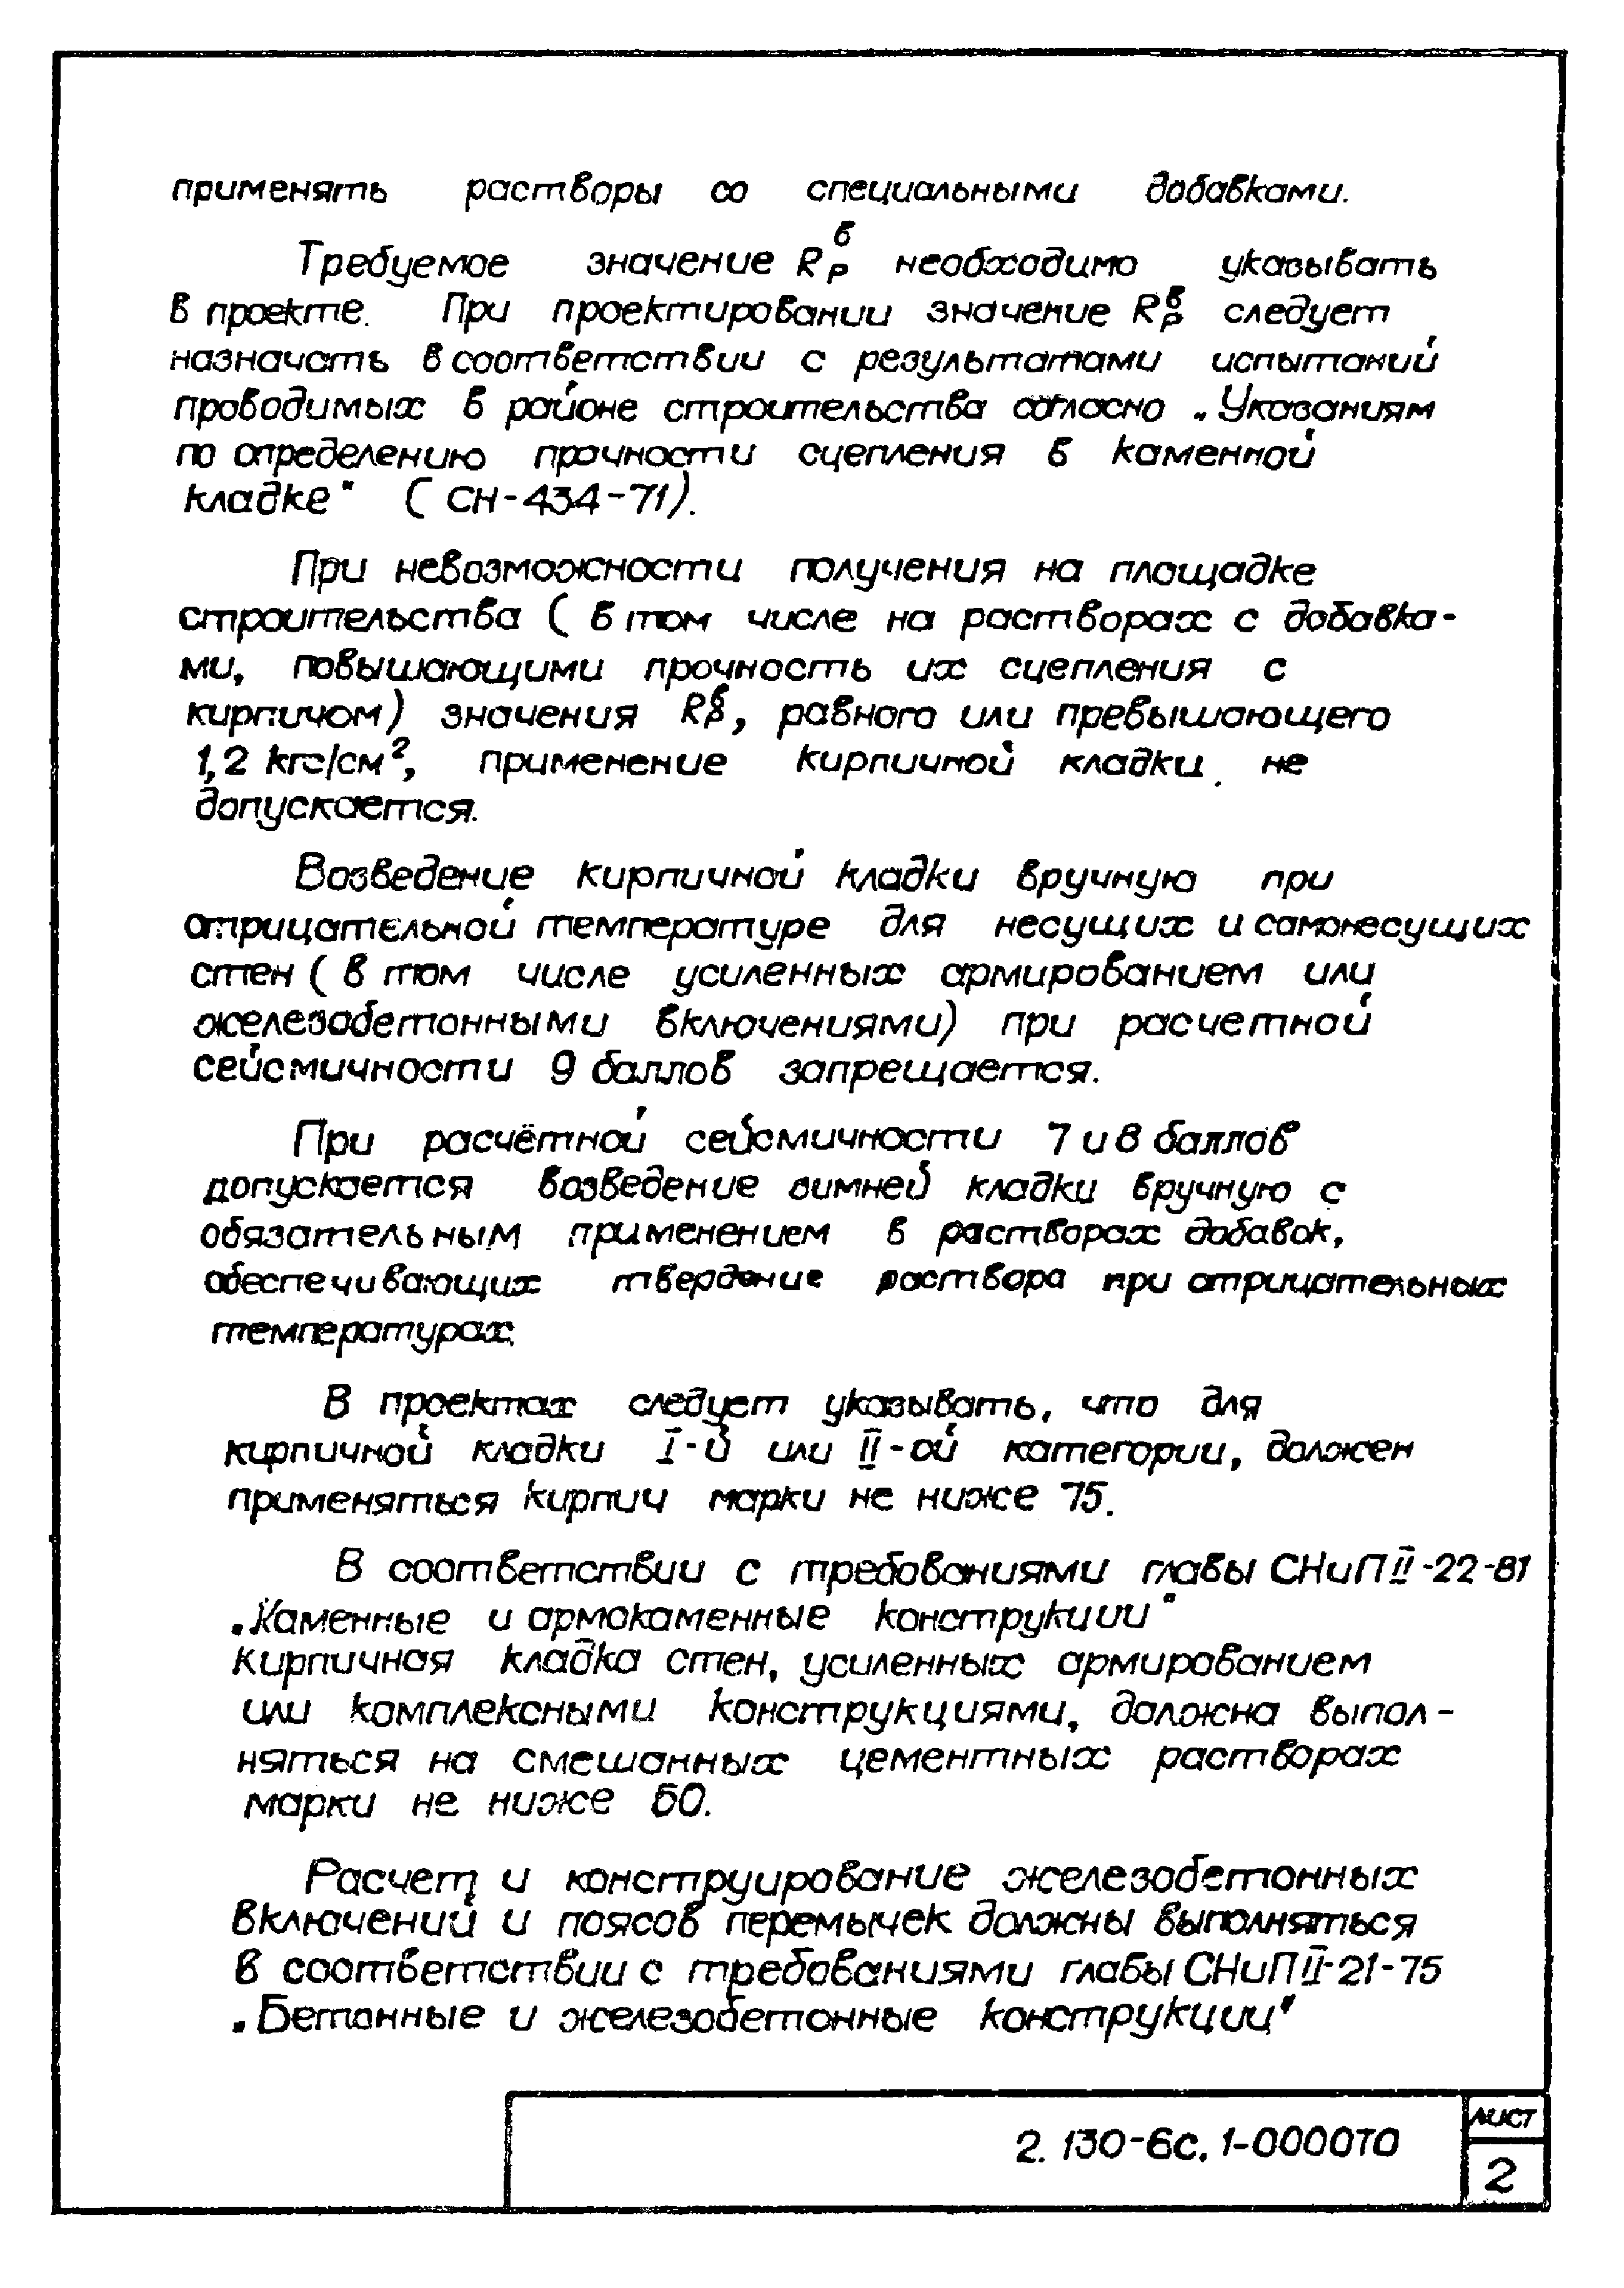 применять растворы со специальными добавками.
Требуемое значение Rрв необходимо указывать
в проекте. При проектировании значение Rрв следует
назначать в соответствии с результатами испытаний
проводимых в районе строительства согласно „Указаниям
по определению прочности сцепления в каменной
кладке" (СН-434-71).
При невозможности получения на площадке
строительства (в том числе на растворах с добавка-
ми, повышающими прочность их сцепления с
кирпичом) значения Rрв, равного или превышающего
1,2 кгс/см², применение кирпичной кладки не
допускается.
Возведение кирпичной кладки вручную при
отрицательной температуре для несущих и самонесущих
стен (в том числе усиленных армированием или
железобетонными включениями) при расчетной
сейсмичности 9 баллов запрещается.
При расчётной сейсмичности 7 и 8 баллов
допускается возведение зимней кладки вручную с
обязательным применением в растворах добавок,
обеспечивающих твердение раствора при отрицательных
температурах.
В проектах следует указывать, что для
кирпичной кладки I-й или II-ой категории, должен
применяться кирпич марки не ниже 75.
В соответствии с требованиями главы СНиП II-22-81
„Каменные и армокаменные конструкции"
кирпичная кладка стен, усиленных армированием
или комплексными конструкциями, должна выпол-
няться на смешанных цементных растворах
марки не ниже 50.
Расчет и конструирование железобетонных
включений и поясов перемычек должны выполняться
в соответствии с требованиями главы СНиП II-21-75
„Бетонные и железобетонные конструкции"
2.130-6с.1-0000ТО
лист
2